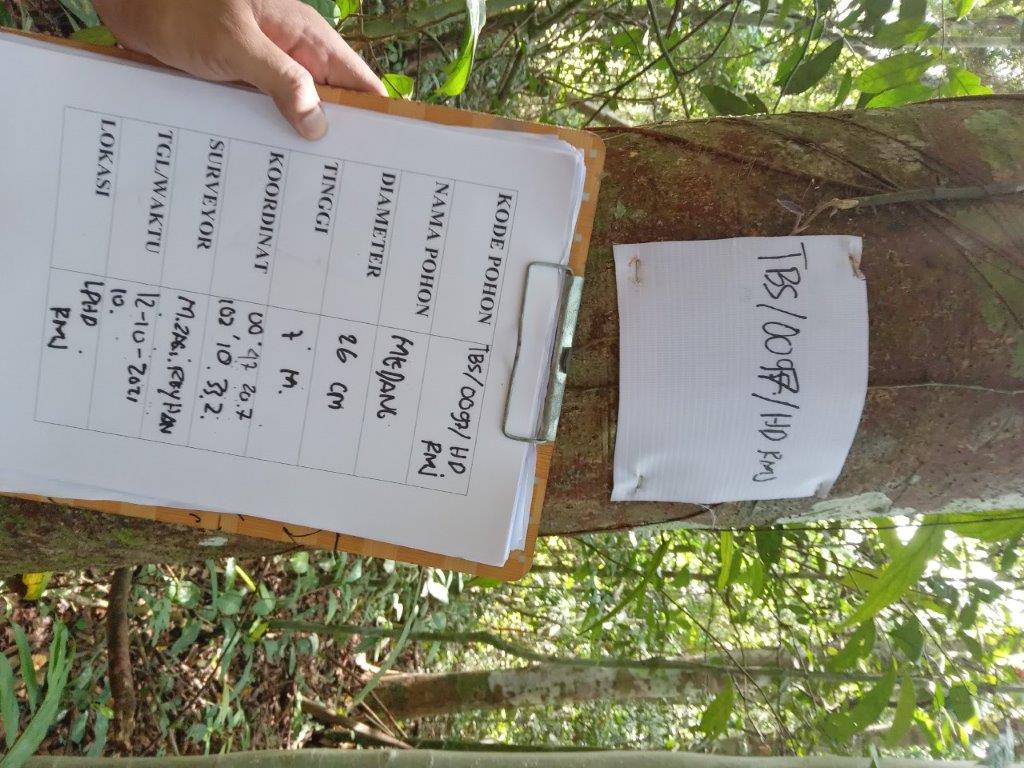 KODE POHON TBS/0097/HD RMJ
NAMA POHON MEDANG
DIAMETER 26 cm
TINGGI 7 M.
KOORDINAT 00° 47 20.7
102° 10 33,2
SURVEYOR M. ZAKI, REYHAN
TGL/WAKTU 12-10-2021
10.
LOKASI LPHD
RMJ
TBS/0097/HD RMJ